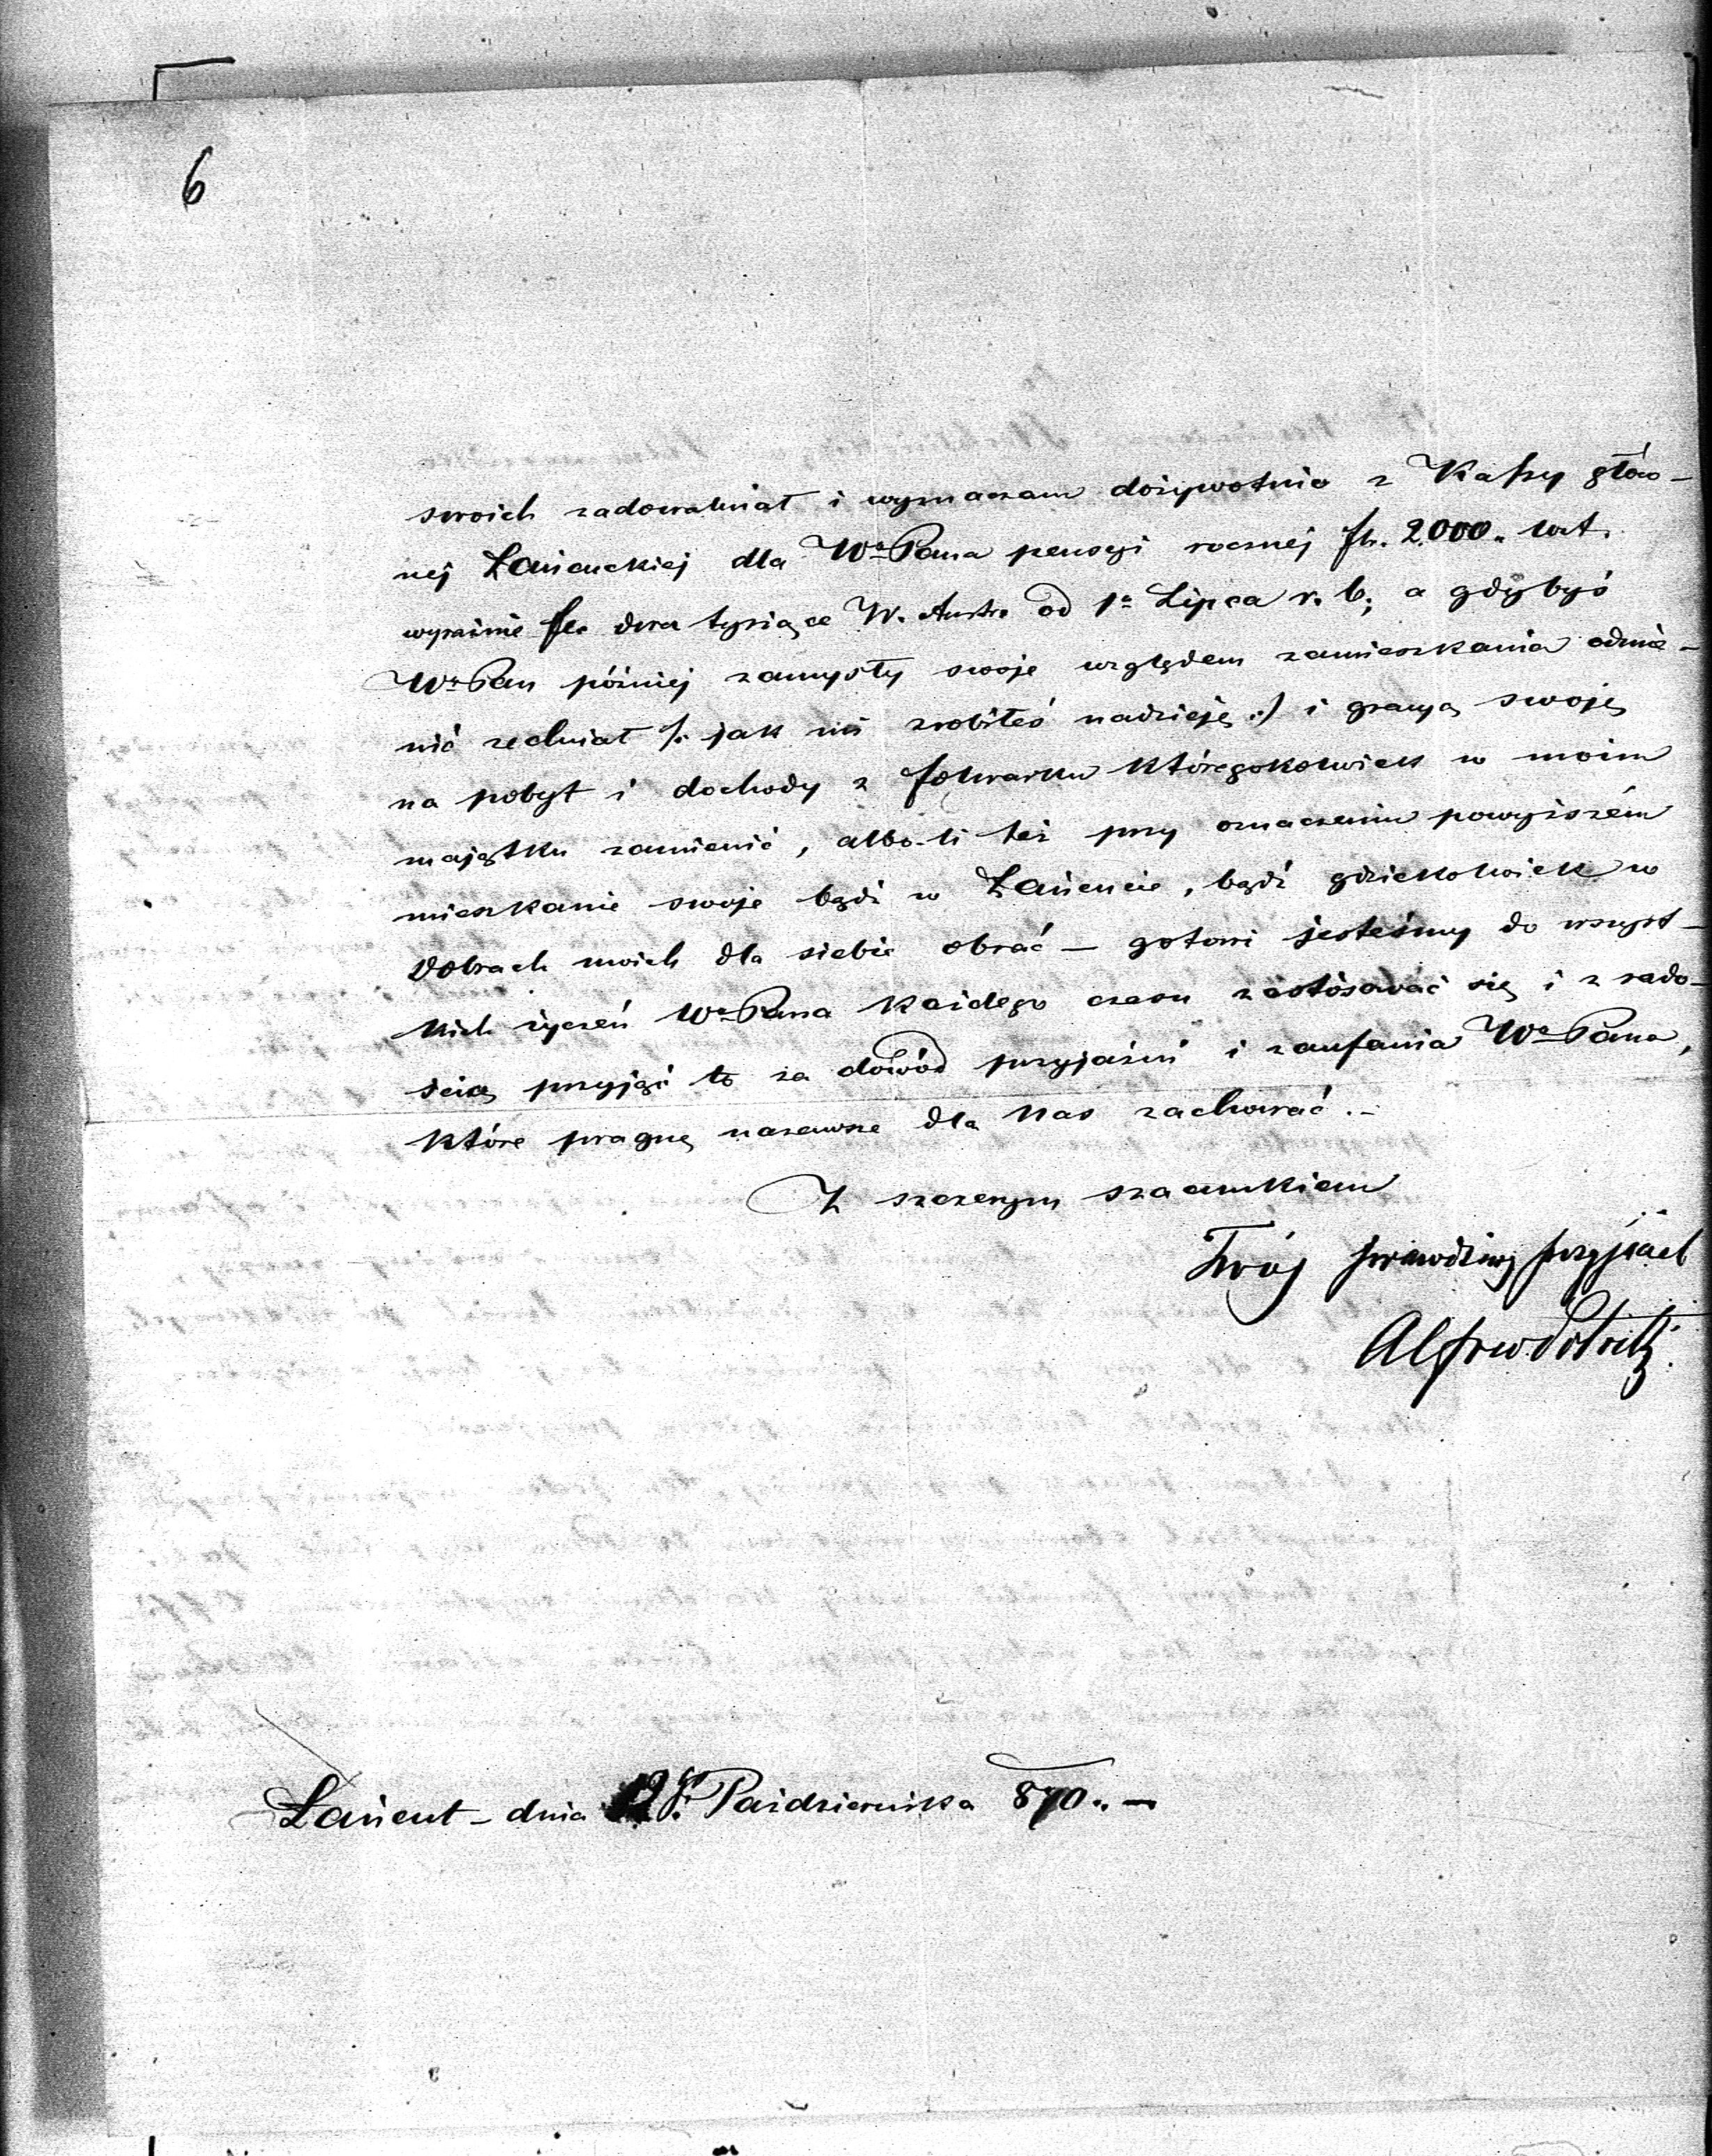 6
swoich zadowalniał i wyznaczam dożywotnio z Kassy głów-
nej Łańcuckiej dla Wº Pana pensyi rocznej fl. 2.000. wat.
wyraźnie fl. dwa tysiące W. Austr. od 1º Lipca r. b.; a gdybyś
Wº Pan później zamysły swoje względem zamieszkania odmie-
nić zechciał /: jak mi zrobiłeś nadzieję :/ i gażę swoję
na pobyt i dochody z folwarku któregokolwiek w moim
majątku zamienić, albo-li też przy oznaczeniu powyższém
mieszkanie swoje bądź w Łańcucie, bądź gdziekolwiek w
dobrach moich dla siebie obrać — gotowi jesteśmy do wszyst-
kich życzeń Wº Pana każdego czasu zastósować się i z rado-
ścią przyjąć to za dowód przyjaźni i zaufania Wº Pana,
które pragnę nazawsze dla nas zachować. –
Z szczerym szacunkiem
Twój prawdziwy przyjaciel
Alfred Potocki
Łańcut – dnia Października 870. –